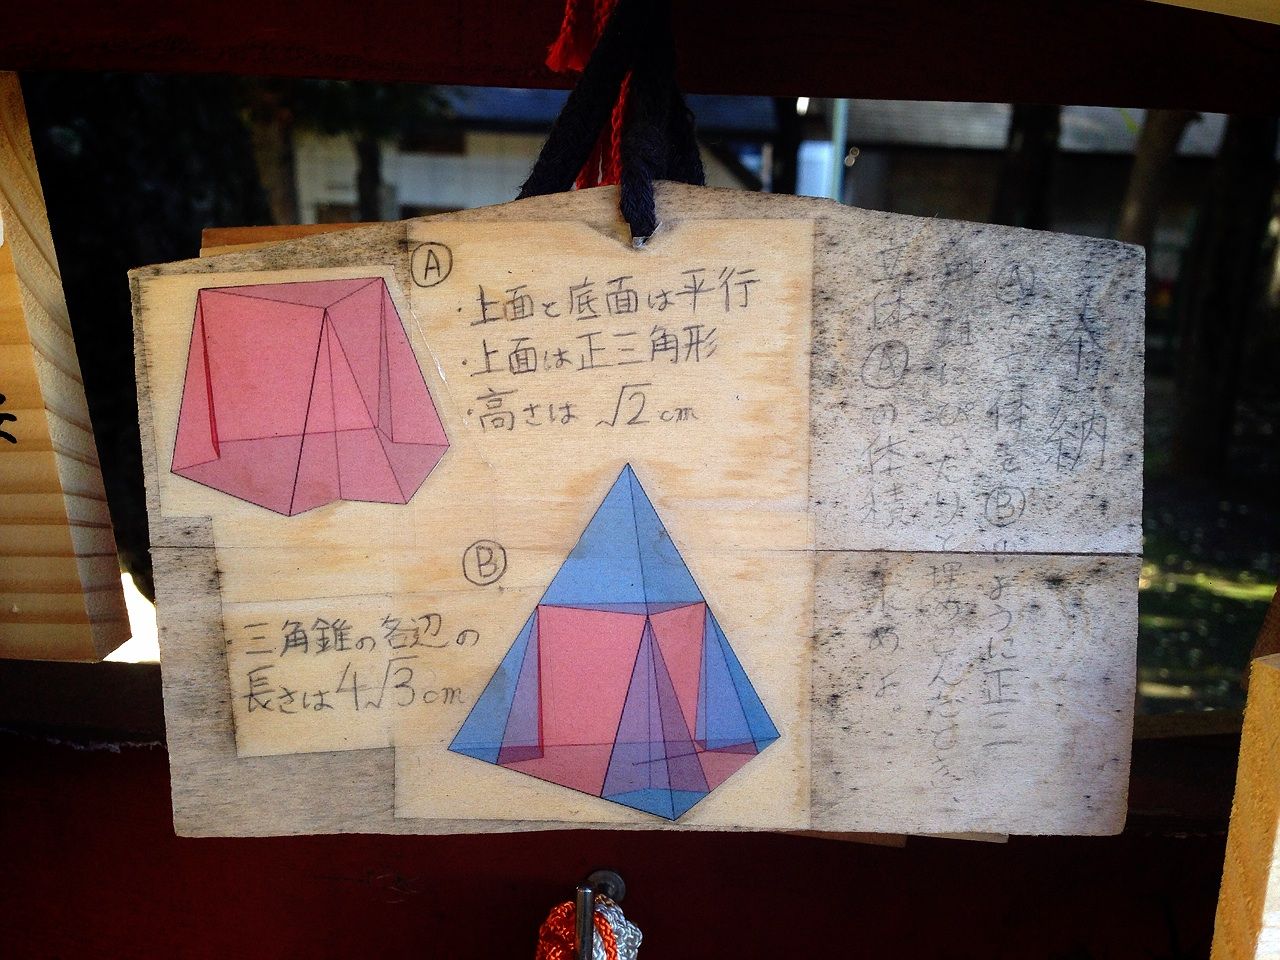 奉納
Ⓐの立体をⒷのように正三
角錐にぴったりと埋めこんだとき、
立体Ⓐの体積を求めよ。
Ⓐ
・上面と底面は平行
・上面は正三角形
・高さは √2 cm
Ⓑ
・三角錐の各辺の
長さは 4√3 cm